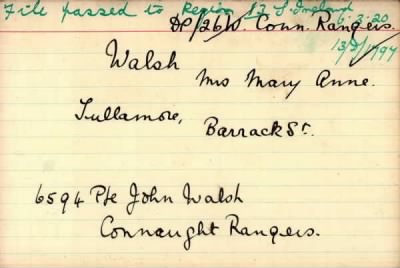 File passed to Region 13 S. Ireland
DP/26/W. Conn. Rangers.
6.2.20
Walsh
Mrs Mary Anne.
Tullamore,
Barrack St.
6594 Pte John Walsh
Connaught Rangers.